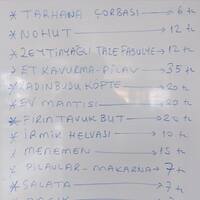 * TARHANA ÇORBASI → 6 ₺
* NOHUT → 12 ₺
* ZEYTİNYAĞLI TAZE FASULYE → 12 ₺
* ET KAVURMA-PİLAV → 35 ₺
* KADINBUDU KÖFTE → 20 ₺
* EV MANTISI → 20 ₺
* FIRIN TAVUK BUT → 20 ₺
* İRMİK HELVASI → 10 ₺
* MENEMEN → 15 ₺
* PİLAVLAR - MAKARNA → 7 ₺
* SALATA → 7 ₺